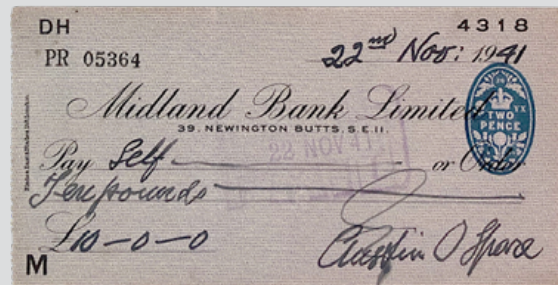 DH 4318
PR 05364 22nd Nov: 1941
Midland Bank Limited
39, NEWINGTON BUTTS, S.E.11.
TWO
PENCE
22 NOV 41
Pay Self or Order
Ten pounds
£10-0-0
Austin O Spare
M